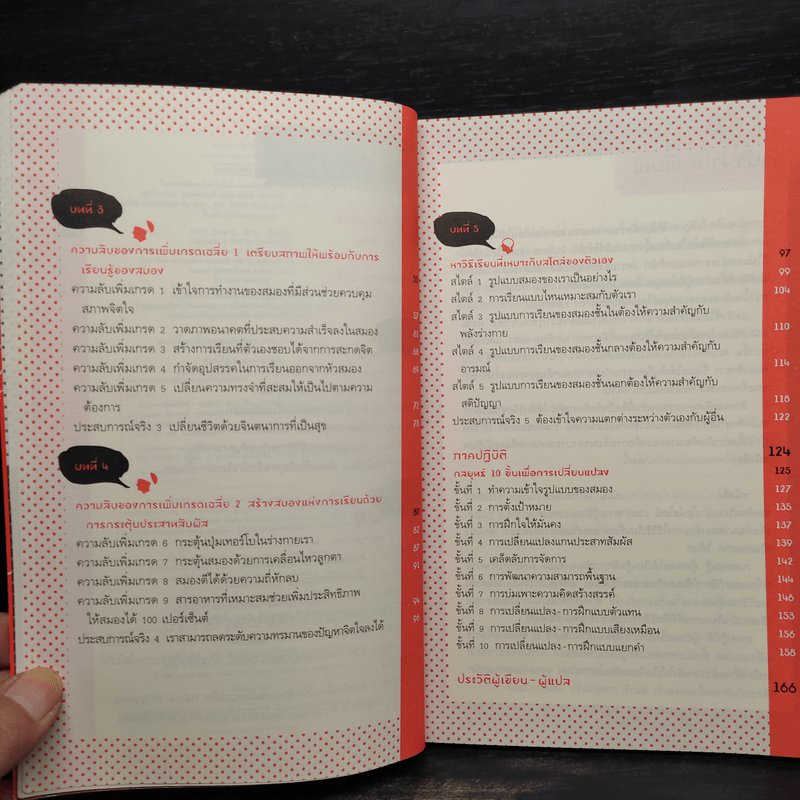 บทที่ 3
ความลับของการเพิ่มเกรดเฉลี่ย 1 เตรียมสภาพให้พร้อมกับการ
เรียนรู้ของสมอง
ความลับเพิ่มเกรด 1 เข้าใจการทำงานของสมองที่มีส่วนช่วยควบคุม
สภาพจิตใจ
ความลับเพิ่มเกรด 2 วาดภาพอนาคตที่ประสบความสำเร็จลงในสมอง
ความลับเพิ่มเกรด 3 สร้างการเรียนที่ตัวเองชอบได้จากการสะกดจิต
ความลับเพิ่มเกรด 4 กำจัดอุปสรรคในการเรียนออกจากหัวสมอง
ความลับเพิ่มเกรด 5 เปลี่ยนความทรงจำที่สะสมให้เป็นไปตามความ
ต้องการ
ประสบการณ์จริง 3 เปลี่ยนชีวิตด้วยจินตนาการที่เป็นสุข
บทที่ 4
ความลับของการเพิ่มเกรดเฉลี่ย 2 สร้างสมองแห่งการเรียนด้วย
การกระตุ้นประสาทสัมผัส
ความลับเพิ่มเกรด 6 กระตุ้นปุ่มเทอร์โบในร่างกายเรา
ความลับเพิ่มเกรด 7 กระตุ้นสมองด้วยการเคลื่อนไหวลูกตา
ความลับเพิ่มเกรด 8 สมองดีได้ด้วยความถี่หักลบ
ความลับเพิ่มเกรด 9 สารอาหารที่เหมาะสมช่วยเพิ่มประสิทธิภาพ
ให้สมองได้ 100 เปอร์เซ็นต์
ประสบการณ์จริง 4 เราสามารถลดระดับความทรมานของปัญหาจิตใจลงได้
บทที่ 5
หาวิธีเรียนที่เหมาะกับสไตล์ของตัวเอง 97
สไตล์ 1 รูปแบบสมองของเราเป็นอย่างไร 99
สไตล์ 2 การเรียนแบบไหนเหมาะสมกับตัวเรา 104
สไตล์ 3 รูปแบบการเรียนของสมองชั้นในต้องให้ความสำคัญกับ
พลังร่างกาย 110
สไตล์ 4 รูปแบบการเรียนของสมองชั้นกลางต้องให้ความสำคัญกับ
อารมณ์ 114
สไตล์ 5 รูปแบบการเรียนของสมองชั้นนอกต้องให้ความสำคัญกับ
สติปัญญา 118
ประสบการณ์จริง 5 ต้องเข้าใจความแตกต่างระหว่างตัวเองกับผู้อื่น 122
ภาคปฏิบัติ 124
กลยุทธ์ 10 ขั้นเพื่อการเปลี่ยนแปลง 125
ขั้นที่ 1 ทำความเข้าใจรูปแบบของสมอง 127
ขั้นที่ 2 การตั้งเป้าหมาย 135
ขั้นที่ 3 การฝึกใจให้มั่นคง 137
ขั้นที่ 4 การเปลี่ยนแปลงแกนประสาทสัมผัส 139
ขั้นที่ 5 เคล็ดลับการจัดการ 142
ขั้นที่ 6 การพัฒนาความสามารถพื้นฐาน 144
ขั้นที่ 7 การบ่มเพาะความคิดสร้างสรรค์ 146
ขั้นที่ 8 การเปลี่ยนแปลง-การฝึกแบบตัวแทน 153
ขั้นที่ 9 การเปลี่ยนแปลง-การฝึกแบบเสียงเหมือน 156
ขั้นที่ 10 การเปลี่ยนแปลง-การฝึกแบบแยกคำ 158
ประวัติผู้เขียน-ผู้แปล 166